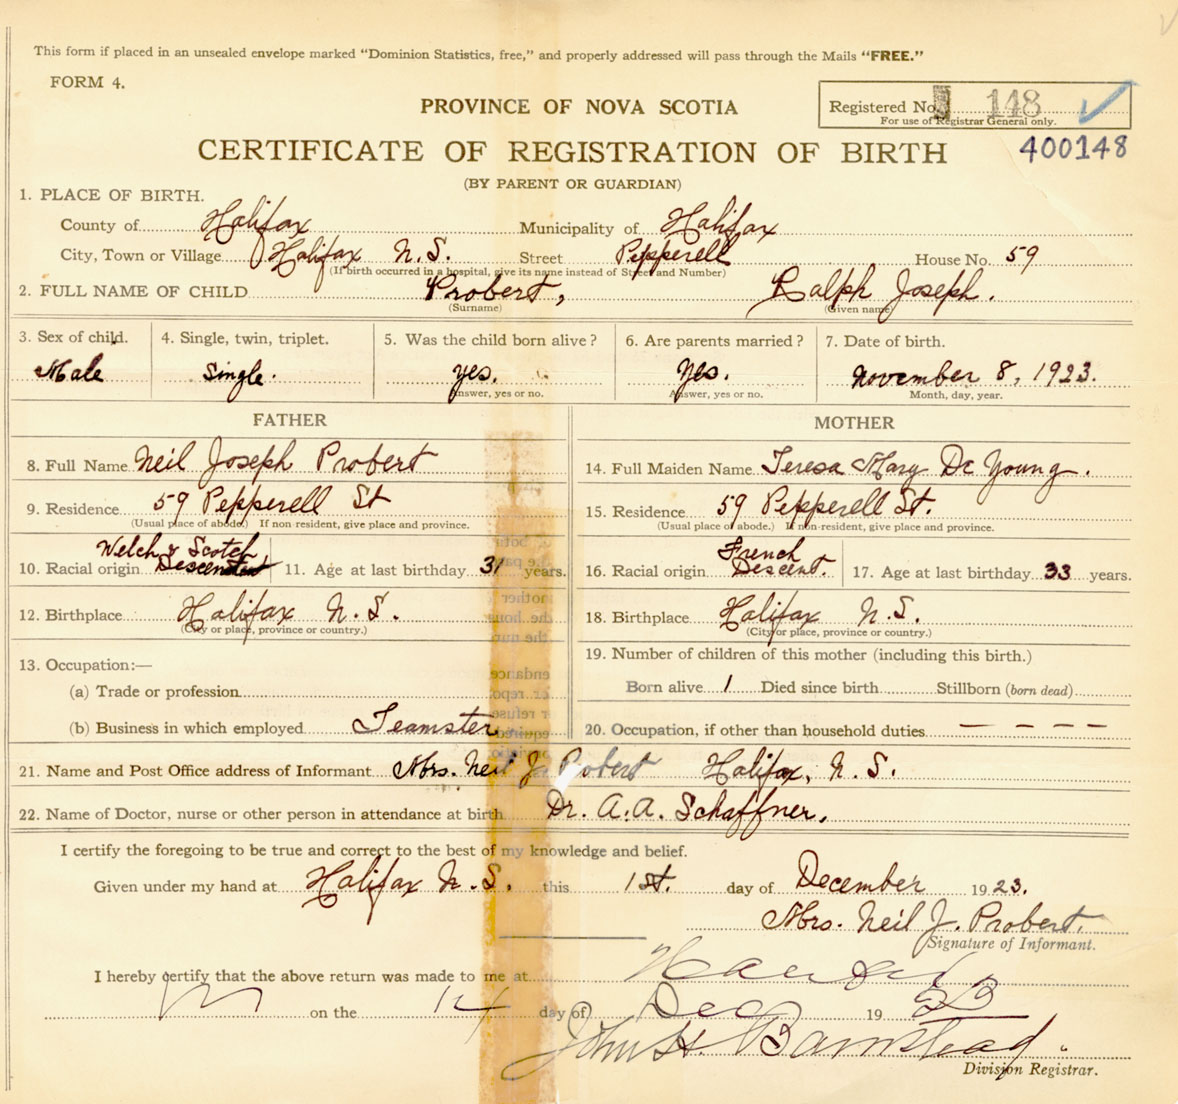 This form if placed in an unsealed envelope marked "Dominion Statistics, free," and properly addressed will pass through the Mails "FREE."
FORM 4.
PROVINCE OF NOVA SCOTIA
Registered No. 148
For use of Registrar General only.
CERTIFICATE OF REGISTRATION OF BIRTH
400148
(BY PARENT OR GUARDIAN)
1. PLACE OF BIRTH.
County of Halifax Municipality of Halifax
City, Town or Village Halifax N.S. Street Pepperell House No. 59
(If birth occurred in a hospital, give its name instead of Street and Number)
2. FULL NAME OF CHILD Probert, Ralph Joseph.
(Surname) (Given name)
3. Sex of child. 4. Single, twin, triplet. 5. Was the child born alive? 6. Are parents married? 7. Date of birth.
Male Single. yes. Yes. November 8, 1923.
Answer, yes or no. Answer, yes or no. Month, day, year.
FATHER
8. Full Name Neil Joseph Probert
9. Residence 59 Pepperell St
(Usual place of abode.) If non resident, give place and province.
Welch & Scotch
10. Racial origin 11. Age at last birthday 31 years.
12. Birthplace Halifax N.S.
(City or place, province or country.)
13. Occupation:—
(a) Trade or profession
(b) Business in which employed Teamster
MOTHER
14. Full Maiden Name Teresa Mary De Young.
15. Residence 59 Pepperell St.
(Usual place of abode.) If non-resident, give place and province.
French
16. Racial origin Descent. 17. Age at last birthday 33 years.
18. Birthplace Halifax N.S.
(City or place, province or country.)
19. Number of children of this mother (including this birth.)
Born alive 1 Died since birth Stillborn (born dead)
20. Occupation, if other than household duties — — — —
21. Name and Post Office address of Informant Mrs. Neil J. Probert Halifax, N.S.
22. Name of Doctor, nurse or other person in attendance at birth Dr. A.A. Schaffner.
I certify the foregoing to be true and correct to the best of my knowledge and belief.
Given under my hand at Halifax N.S. this 1st. day of December 1923.
Mrs. Neil J. Probert.
Signature of Informant.
I hereby certify that the above return was made to me at
on the 14 day of Dec 19 23
John H. Barnstead.
Division Registrar.